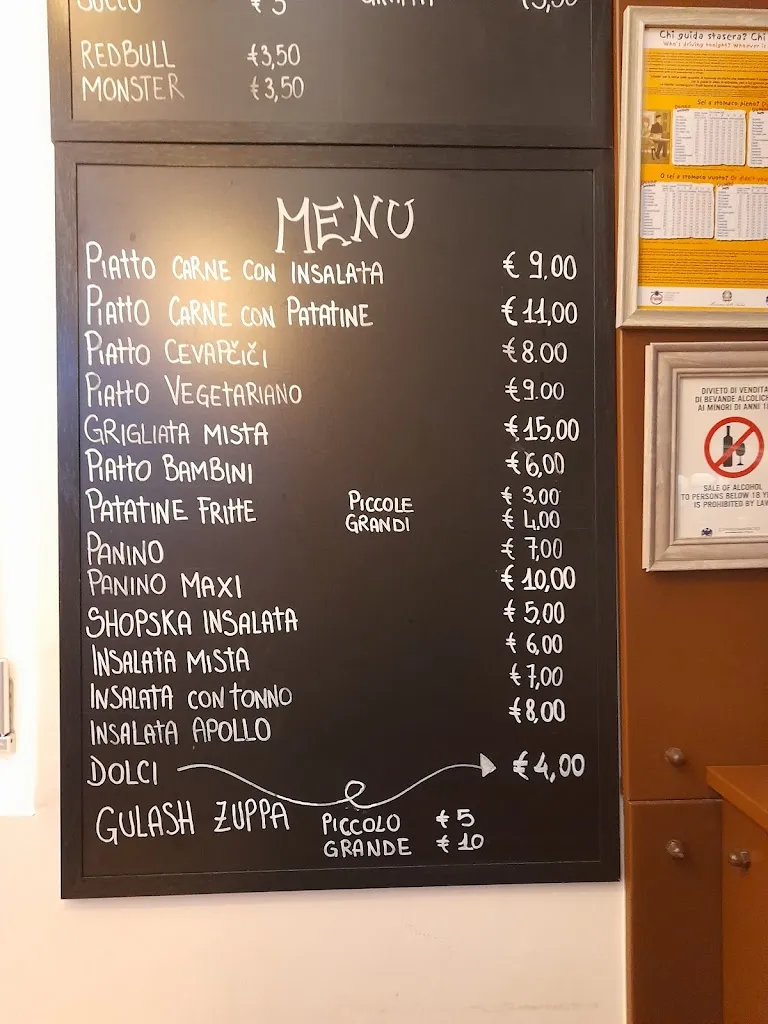 € 5
REDBULL €3,50
MONSTER €3,50
MENU
PIATTO CARNE CON INSALATA € 9,00
PIATTO CARNE CON PATATINE € 11,00
PIATTO CEVAPČIČI €8.00
PIATTO VEGETARIANO €9.00
GRIGLIATA MISTA €15,00
PIATTO BAMBINI €6,00
PATATINE FRITTE PICCOLE € 3,00
GRANDI € 4,00
PANINO € 7,00
PANINO MAXI € 10,00
SHOPSKA INSALATA € 5,00
INSALATA MISTA € 6,00
INSALATA CON TONNO € 7,00
INSALATA APOLLO € 8,00
DOLCI € 4,00
GULASH ZUPPA PICCOLO € 5
GRANDE € 10
Chi guida stasera? Chi
Who's driving tonight? Whoever is
Sei a stomaco pieno?
O sei a stomaco vuoto?
DIVIETO DI VENDITA
DI BEVANDE ALCOLICH
AI MINORI DI ANNI 1
SALE OF ALCOHOL
TO PERSONS BELOW 18 Y
IS PROHIBITED BY LAW